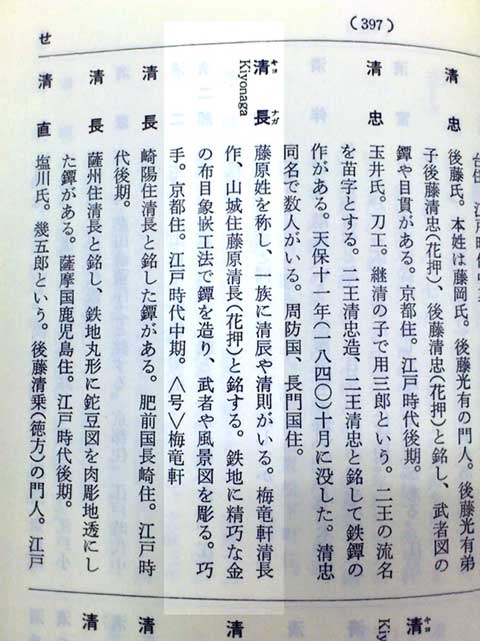 (397)
せ
清忠
台住。江戸時代中
後藤氏。本姓は藤岡氏。後藤光有の門人。後藤光有弟
子後藤清忠(花押)、後藤清忠(花押)と銘し、武者図の
鐔や目貫がある。京都住。江戸時代後期。
清忠
玉井氏。刀工。継清の子で用三郎という。二王の流名
を苗字とする。二王清忠造、二王清忠と銘して鉄鐔の
作がある。天保十一年(一八四〇)十月に没した。清忠
同名で数人がいる。周防国、長門国住。
清長
キヨ ナガ
Kiyonaga
藤原姓を称し、一族に清辰や清則がいる。梅竜軒清長
作、山城住藤原清長(花押)と銘する。鉄地に精巧な金
の布目象嵌工法で鐔を造り、武者や風景図を彫る。巧
手。京都住。江戸時代中期。〈号〉梅竜軒
清長
崎陽住清長と銘した鐔がある。肥前国長崎住。江戸時
代後期。
清長
薩州住清長と銘し、鉄地丸形に鉈豆図を肉彫地透にし
た鐔がある。薩摩国鹿児島住。江戸時代後期。
清直
塩川氏。幾五郎という。後藤清乗(徳方)の門人。江戸
清
キヨ
清
清
清